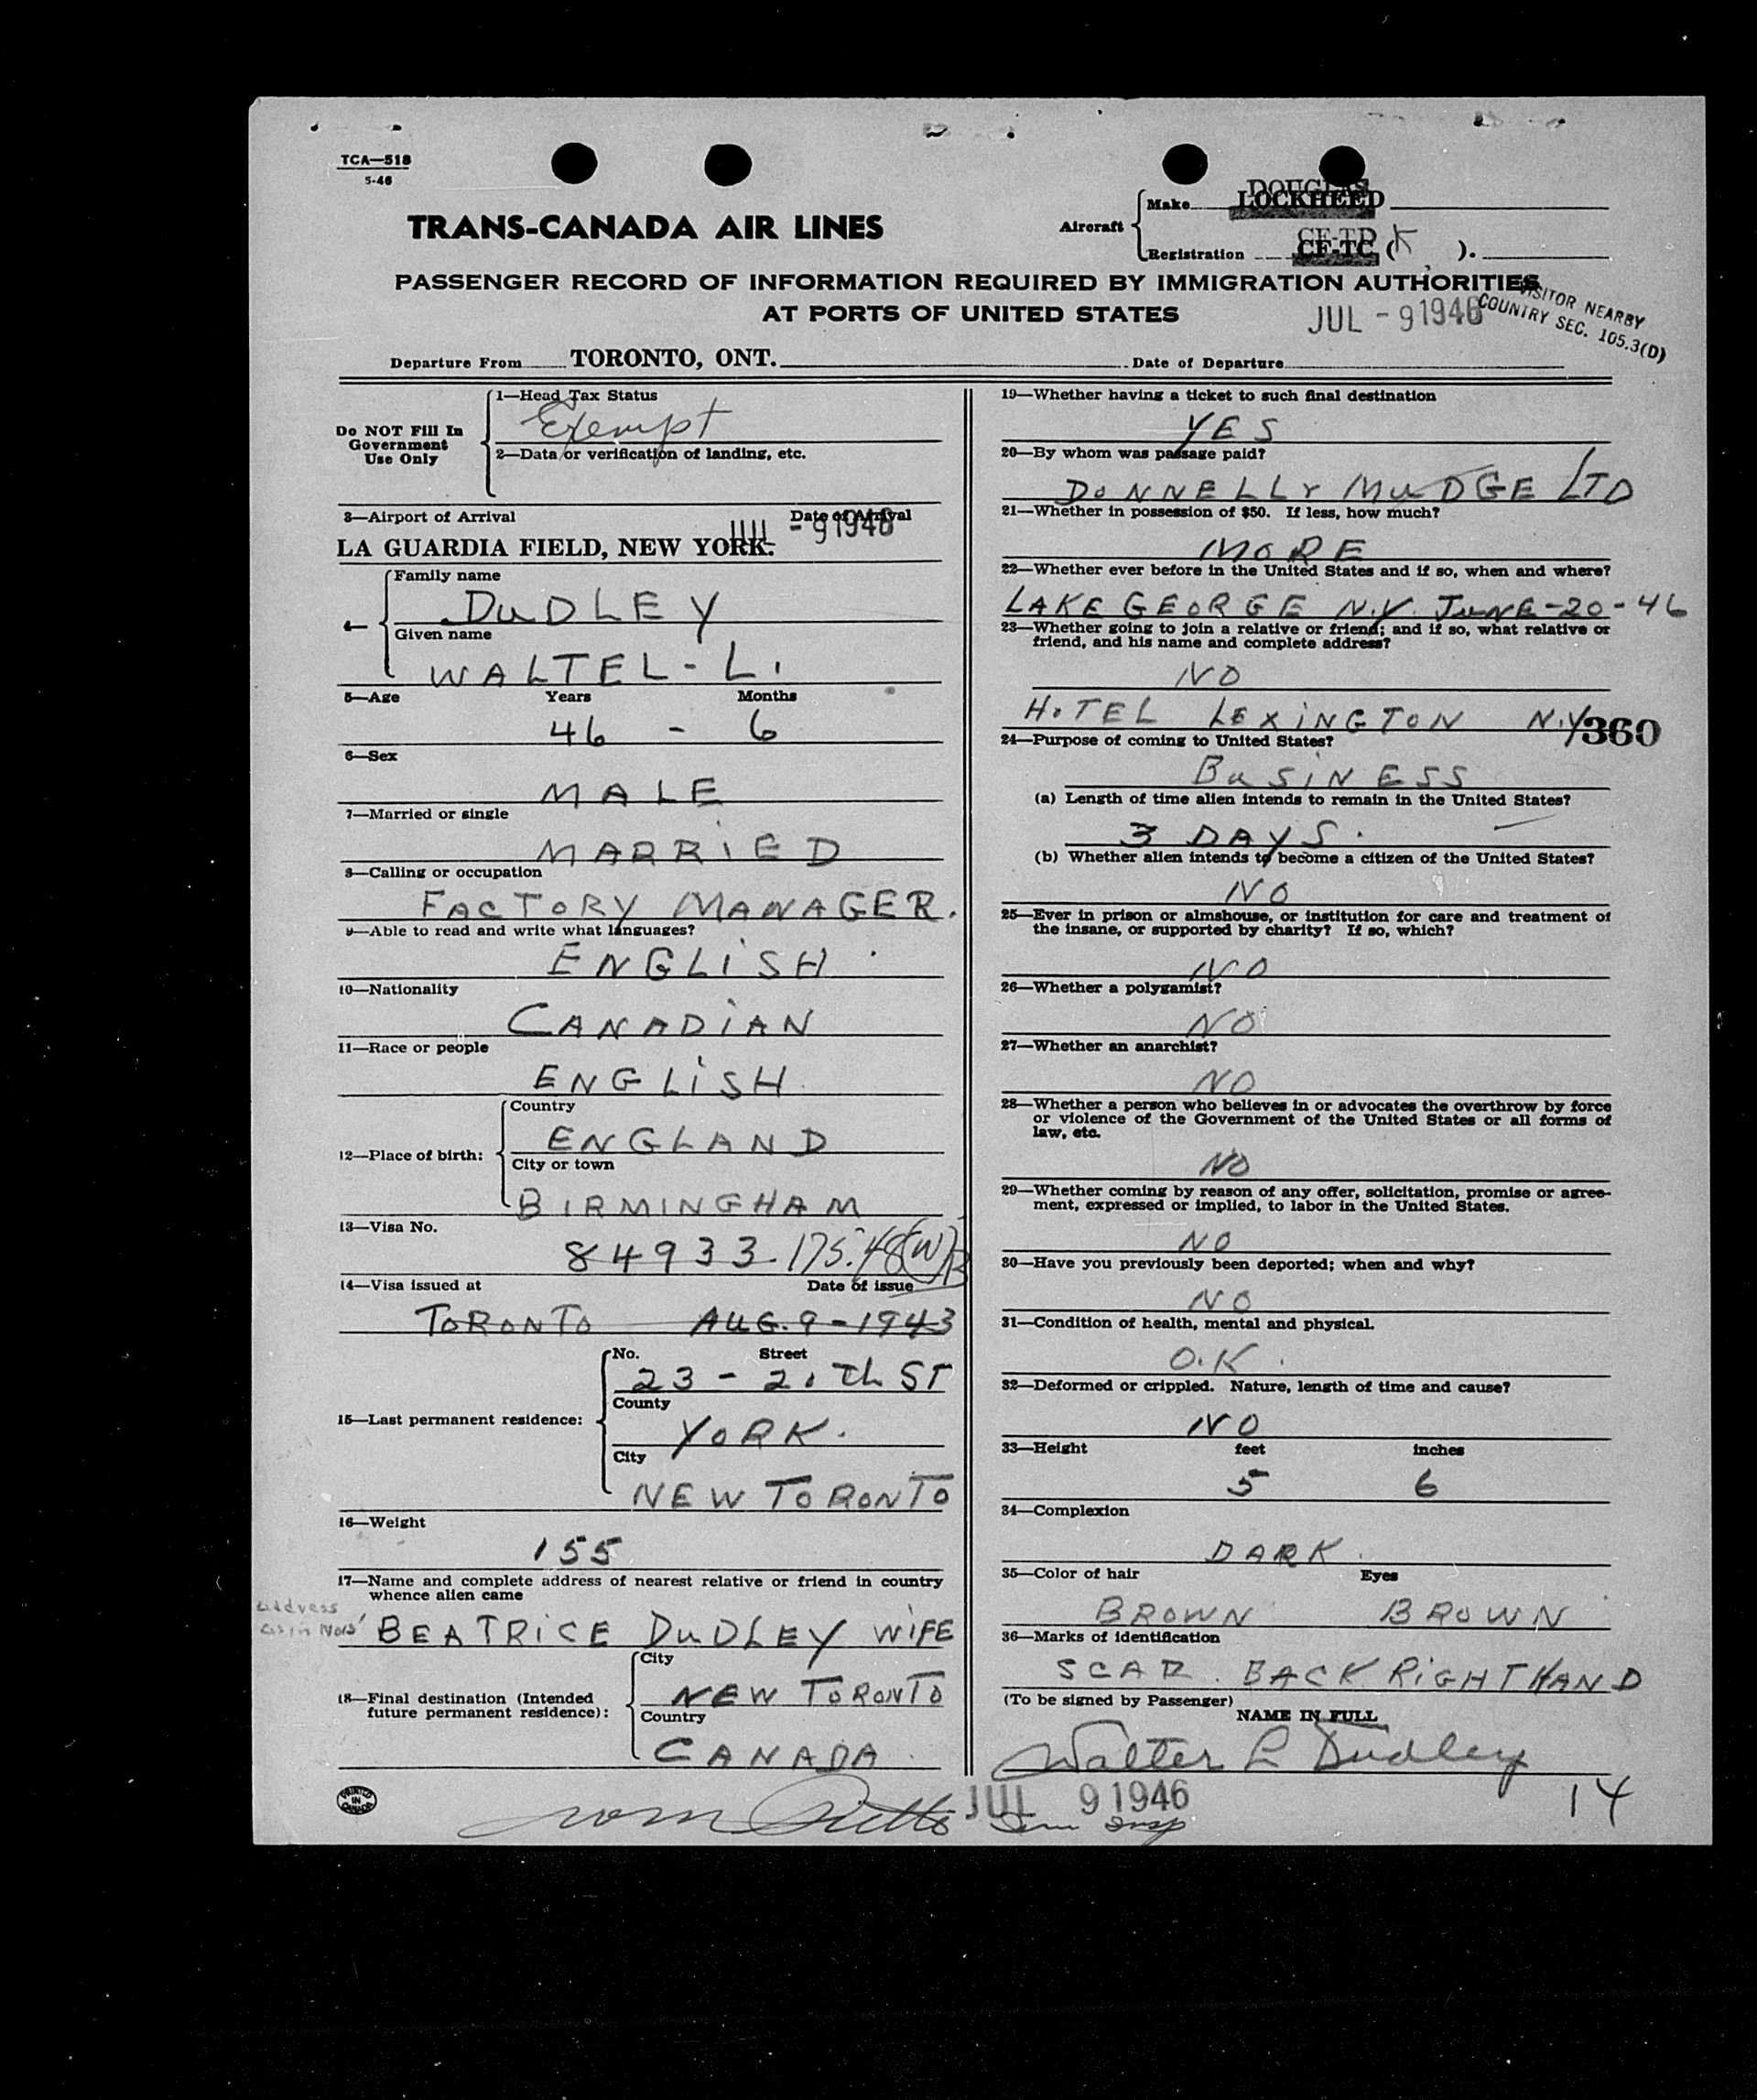 TCA—518
5-46
TRANS-CANADA AIR LINES
Aircraft
Make
DOUGLAS
LOCKHEED
Registration
CF-TD
CF-TC ( K ).
PASSENGER RECORD OF INFORMATION REQUIRED BY IMMIGRATION AUTHORITIES
AT PORTS OF UNITED STATES
JUL - 9 1946
VISITOR NEARBY
COUNTRY SEC. 105.3(D)
Departure From TORONTO, ONT. Date of Departure
Do NOT Fill In
Government
Use Only
1—Head Tax Status
Exempt
2—Data or verification of landing, etc.
3—Airport of Arrival Date of Arrival
LA GUARDIA FIELD, NEW YORK. JUL - 9 1946
Family name
DUDLEY
Given name
WALTEL - L.
5—Age Years Months
46 - 6
6—Sex
MALE
7—Married or single
MARRIED
8—Calling or occupation
FACTORY MANAGER.
9—Able to read and write what languages?
ENGLISH
10—Nationality
CANADIAN
11—Race or people
ENGLISH
12—Place of birth:
Country
ENGLAND
City or town
BIRMINGHAM
13—Visa No.
84933
14—Visa issued at Date of issue
TORONTO AUG. 9 - 1943
15—Last permanent residence:
No. Street
23 - 20 Th ST
County
YORK.
City
NEW TORONTO
16—Weight
155
17—Name and complete address of nearest relative or friend in country
whence alien came
address
BEATRICE DUDLEY WIFE
18—Final destination (Intended
future permanent residence):
City
NEW TORONTO
Country
CANADA
PRINTED
IN
CANADA
19—Whether having a ticket to such final destination
YES
20—By whom was passage paid?
DONNELLY MUDGE LTD
21—Whether in possession of $50. If less, how much?
MORE
22—Whether ever before in the United States and if so, when and where?
LAKE GEORGE N.Y. JUNE-20-46
23—Whether going to join a relative or friend; and if so, what relative or
friend, and his name and complete address?
NO
HOTEL LEXINGTON N.Y. 360
24—Purpose of coming to United States?
BUSINESS
(a) Length of time alien intends to remain in the United States?
3 DAYS.
(b) Whether alien intends to become a citizen of the United States?
NO
25—Ever in prison or almshouse, or institution for care and treatment of
the insane, or supported by charity? If so, which?
NO
26—Whether a polygamist?
NO
27—Whether an anarchist?
NO
28—Whether a person who believes in or advocates the overthrow by force
or violence of the Government of the United States or all forms of
law, etc.
NO
29—Whether coming by reason of any offer, solicitation, promise or agree-
ment, expressed or implied, to labor in the United States.
NO
30—Have you previously been deported; when and why?
NO
31—Condition of health, mental and physical.
O.K.
32—Deformed or crippled. Nature, length of time and cause?
NO
33—Height feet inches
5 6
34—Complexion
DARK
35—Color of hair Eyes
BROWN BROWN
36—Marks of identification
SCAR. BACK RIGHT HAND
(To be signed by Passenger)
NAME IN FULL
Walter L Dudley
JUL 9 1946
14